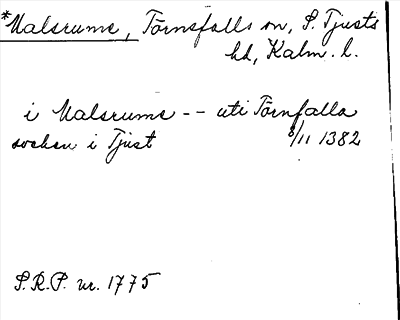 *Malsrums, Törnsfalls sn, S. Tjusts
hd, Kalm. l.
i Malsrums -- uti Törnfalla
socken i Tjust 8/11 1382
S.R.P. nr. 1775